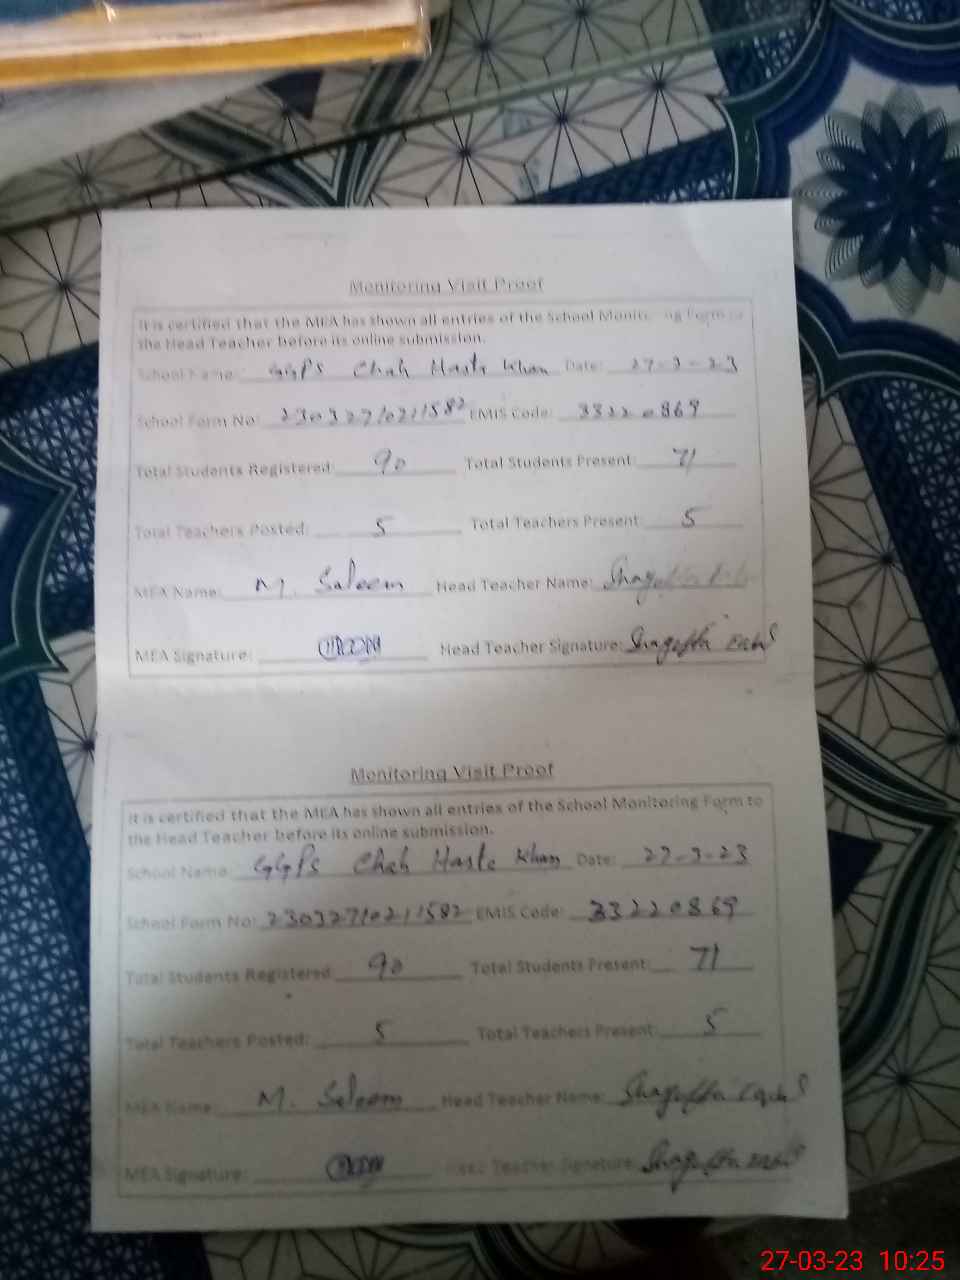 Monitoring Visit Proof
It is certified that the MEA has shown all entries of the School Monitoring Form to
the Head Teacher before its online submission.
School Name: GGPS Chah Haste Khan Date: 27-3-23
School Form No: 23032710211582 EMIS Code: 33220869
Total Students Registered: 90 Total Students Present: 71
Total Teachers Posted: 5 Total Teachers Present: 5
MEA Name: M. Saleem Head Teacher Name: Shagufta
MEA Signature: Head Teacher Signature: Shagufta
Monitoring Visit Proof
It is certified that the MEA has shown all entries of the School Monitoring Form to
the Head Teacher before its online submission.
School Name: GGPS Chah Haste Khan Date: 27-3-23
School Form No: 23032710211582 EMIS Code: 33220869
Total Students Registered 90 Total Students Present: 71
Total Teachers Posted: 5 Total Teachers Present: 5
MEA Name: M. Saleem Head Teacher Name: Shagufta
MEA Signature: Head Teacher Signature: Shagufta
27-03-23 10:25